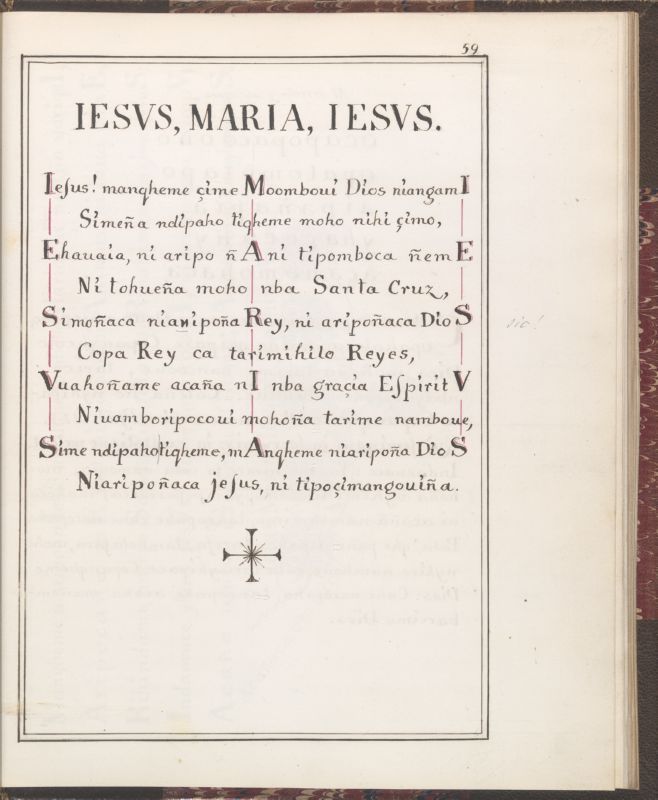 59
IESVS, MARIA, IESVS.
Iesus! manqheme çime Moomboui Dios niangamI
Simeña ndipaho tiqheme moho nihi çimo,
Ehauaia, ni aripo ñ Ani tipomboca ñem E
Ni tohueña moho nba Santa Cruz,
Simoñaca nianipoña Rey, ni aripoñaca DioS
sio!
Copa Rey ca tarimihilo Reyes,
Vuahoñame acaña nI nba graçia EſpiritV
Niuamboripocoui mohoña tarime namboue,
Sime ndipaho tiqheme, mAnqheme niaripoña DioS
Niaripoñaca jeſus, ni tipoçimangouiña.